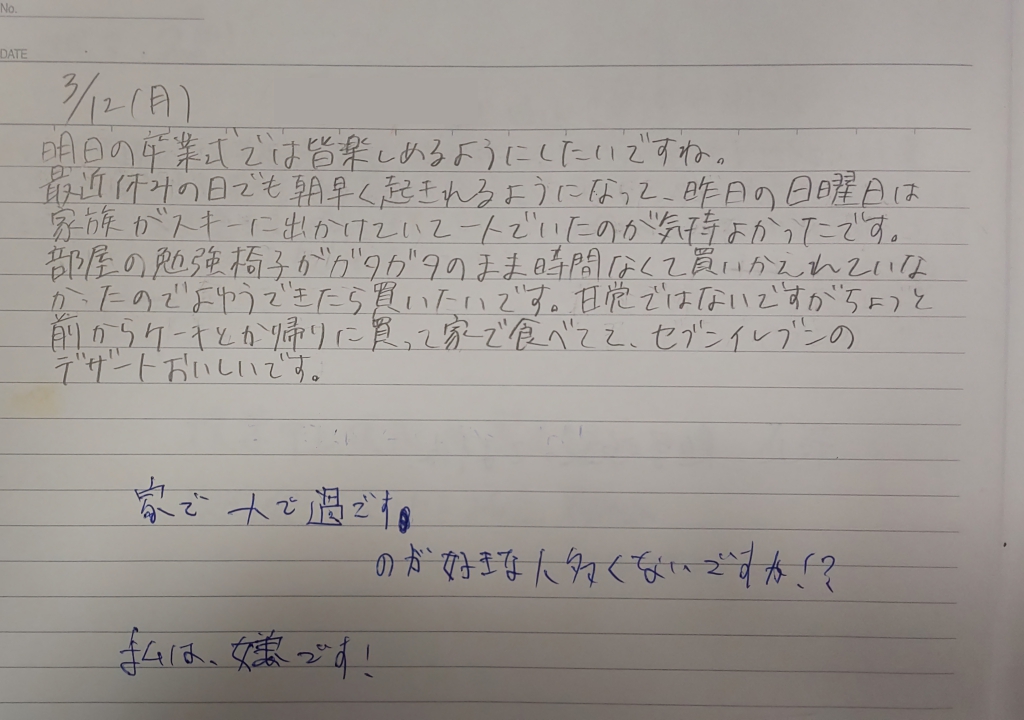 No.
DATE
3/12(月)
明日の卒業式では皆楽しめるようにしたいですね。
最近休みの日でも朝早く起きれるようになって、昨日の日曜日は
家族がスキーに出かけていて一人でいたのが気持よかったです。
部屋の勉強椅子がガタガタのまま時間なくて買いかえれていな
かったのでよゆうできたら買いたいです。日常ではないですがちょっと
前からケーキとか帰りに買って家で食べてて、セブンイレブンの
デザートおいしいです。
家で一人で過ごす
のが好きな人多くないですか!?
私は、嫌です!